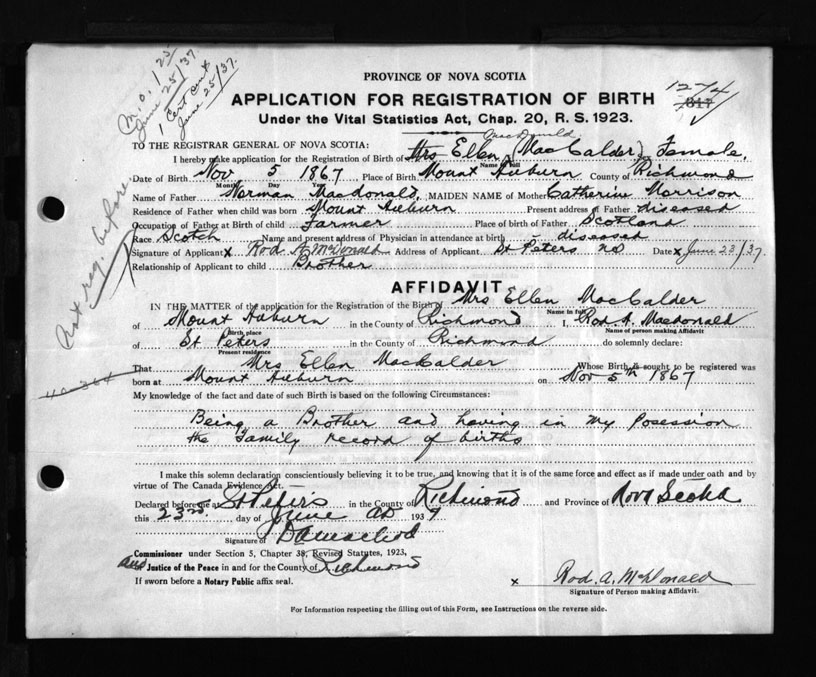 M.O. 1 25
June 25/37.
1 Cert sent
June 25/37.
PROVINCE OF NOVA SCOTIA
1274
317
APPLICATION FOR REGISTRATION OF BIRTH
Under the Vital Statistics Act, Chap. 20, R. S. 1923.
TO THE REGISTRAR GENERAL OF NOVA SCOTIA:
MacDonald
I hereby make application for the Registration of Birth of Mrs Ellen (MacCalder) Female.
Name in full
Date of Birth Nov 5 1867 Place of Birth Mount Auburn County of Richmond
Month Day Year
Name of Father Norman Macdonald. MAIDEN NAME of Mother Catherine Morrison
Residence of Father when child was born Mount Auburn Present address of Father diseased
Occupation of Father at Birth of child Farmer Place of Birth of Father Scotland
Race Scotch Name and present address of Physician in attendance at birth diseased
Signature of Applicant x Rod A McDonald Address of Applicant St Peters NS Date x June 23/37.
Relationship of Applicant to child Brother
Not reg. before
AFFIDAVIT
IN THE MATTER of the application for the Registration of the Birth of Mrs Ellen MacCalder
Name in full
of Mount Auburn in the County of Richmond I, Rod. A. Macdonald
Birth place Name of person making Affidavit
of St Peters in the County of Richmond do solemnly declare:
Present residence
That Mrs Ellen MacCalder Whose Birth is sought to be registered was
born at Mount Auburn on Nov 5th 1867
My knowledge of the fact and date of such Birth is based on the following Circumstances:
Being a Brother and having in my Posession
the Family record of births
I make this solemn declaration conscientiously believing it to be true, and knowing that it is of the same force and effect as if made under oath and by
virtue of The Canada Evidence Act.
Declared before me at St Peters in the County of Richmond and Province of Nova Scotia
this 23rd day of June AD 1937
Signature of
Commissioner under Section 5, Chapter 38, Revised Statutes, 1923,
and Justice of the Peace in and for the County of Richmond
If sworn before a Notary Public affix seal.
x Rod. A. McDonald
Signature of Person making Affidavit.
For Information respecting the filling out of this Form, see Instructions on the reverse side.